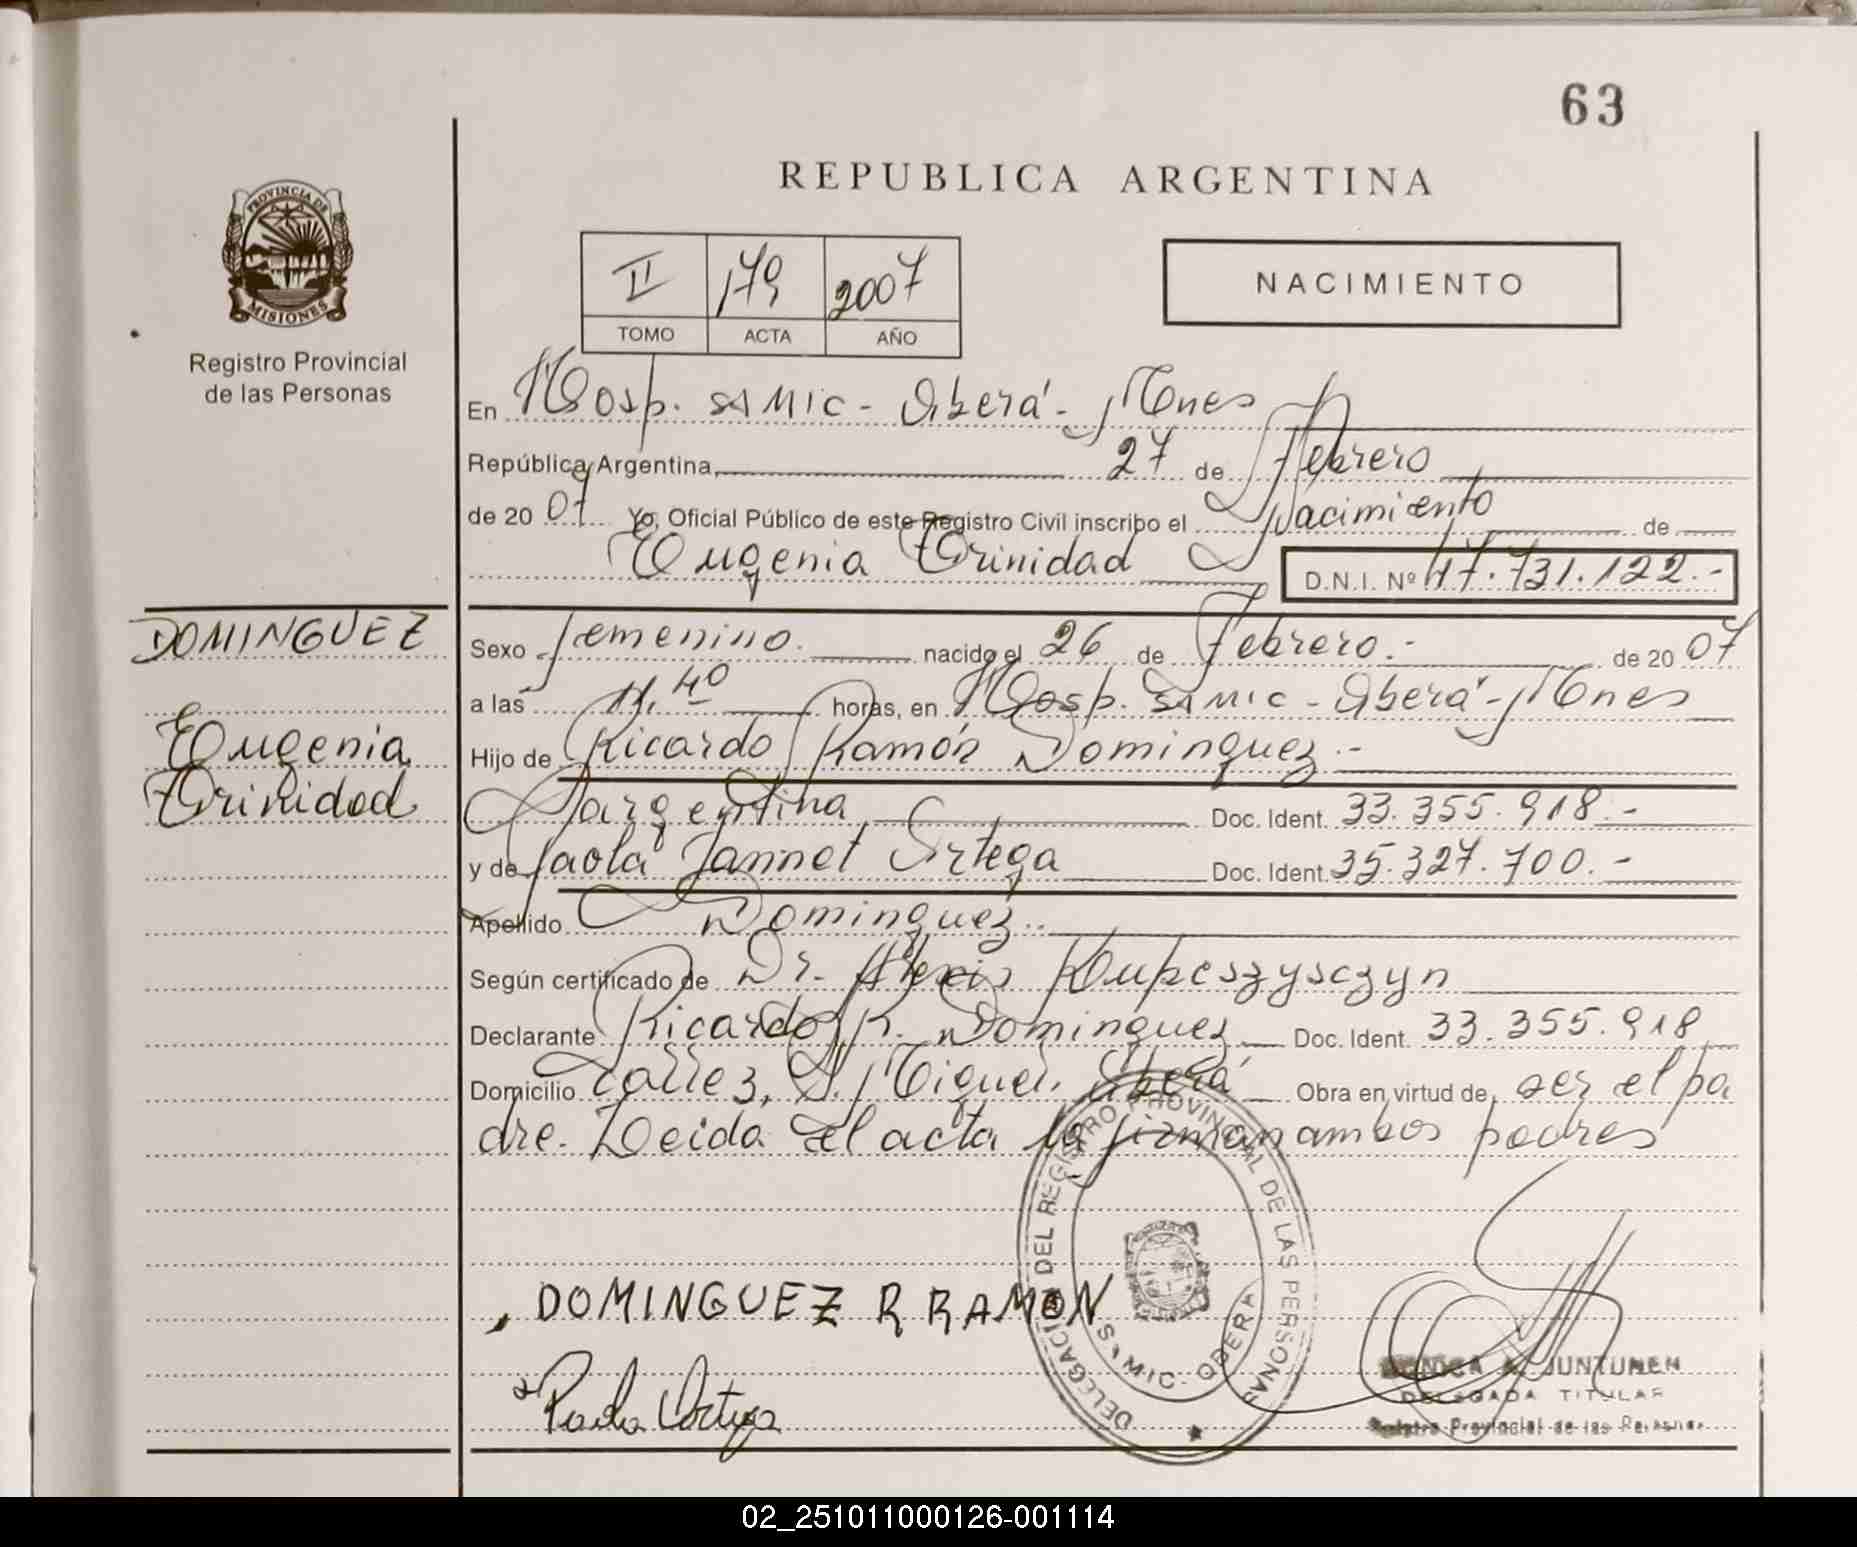 63
REPUBLICA ARGENTINA
PROVINCIA DE
MISIONES
Registro Provincial
de las Personas
II 179 2007
TOMO ACTA AÑO
NACIMIENTO
En Hosp. SAMIC - Oberá - Mnes
República Argentina, 27 de Febrero
de 20 07 Yo, Oficial Público de este Registro Civil inscribo el Nacimiento de
Eugenia Trinidad D.N.I. Nº 47.731.122.-
DOMINGUEZ
Eugenia
Trinidad
Sexo femenino. nacido el 26 de Febrero.- de 20 07
a las 11.40 horas, en Hosp. SAMIC - Oberá - Mnes
Hijo de Ricardo Ramón Dominguez.-
argentina Doc. Ident. 33.355.918.-
y de Paola Jannet Ortega Doc. Ident. 35.327.700.-
Apellido Dominguez.
Según certificado de Dr. Alexis Kupcszysczyn
Declarante Ricardo R. Dominguez Doc. Ident. 33.355.918
Domicilio Calle 3, S. Miguel. Oberá Obra en virtud de ser el pa
dre. Leida el acta la firman ambos padres
DOMINGUEZ R RAMON
Paola Ortega
DELEGACION DEL REGISTRO PROVINCIAL DE LAS PERSONAS
SAMIC - OBERA
JUNTUNEN
DELEGADA TITULAR
Registro Provincial de las Personas
02_251011000126-001114